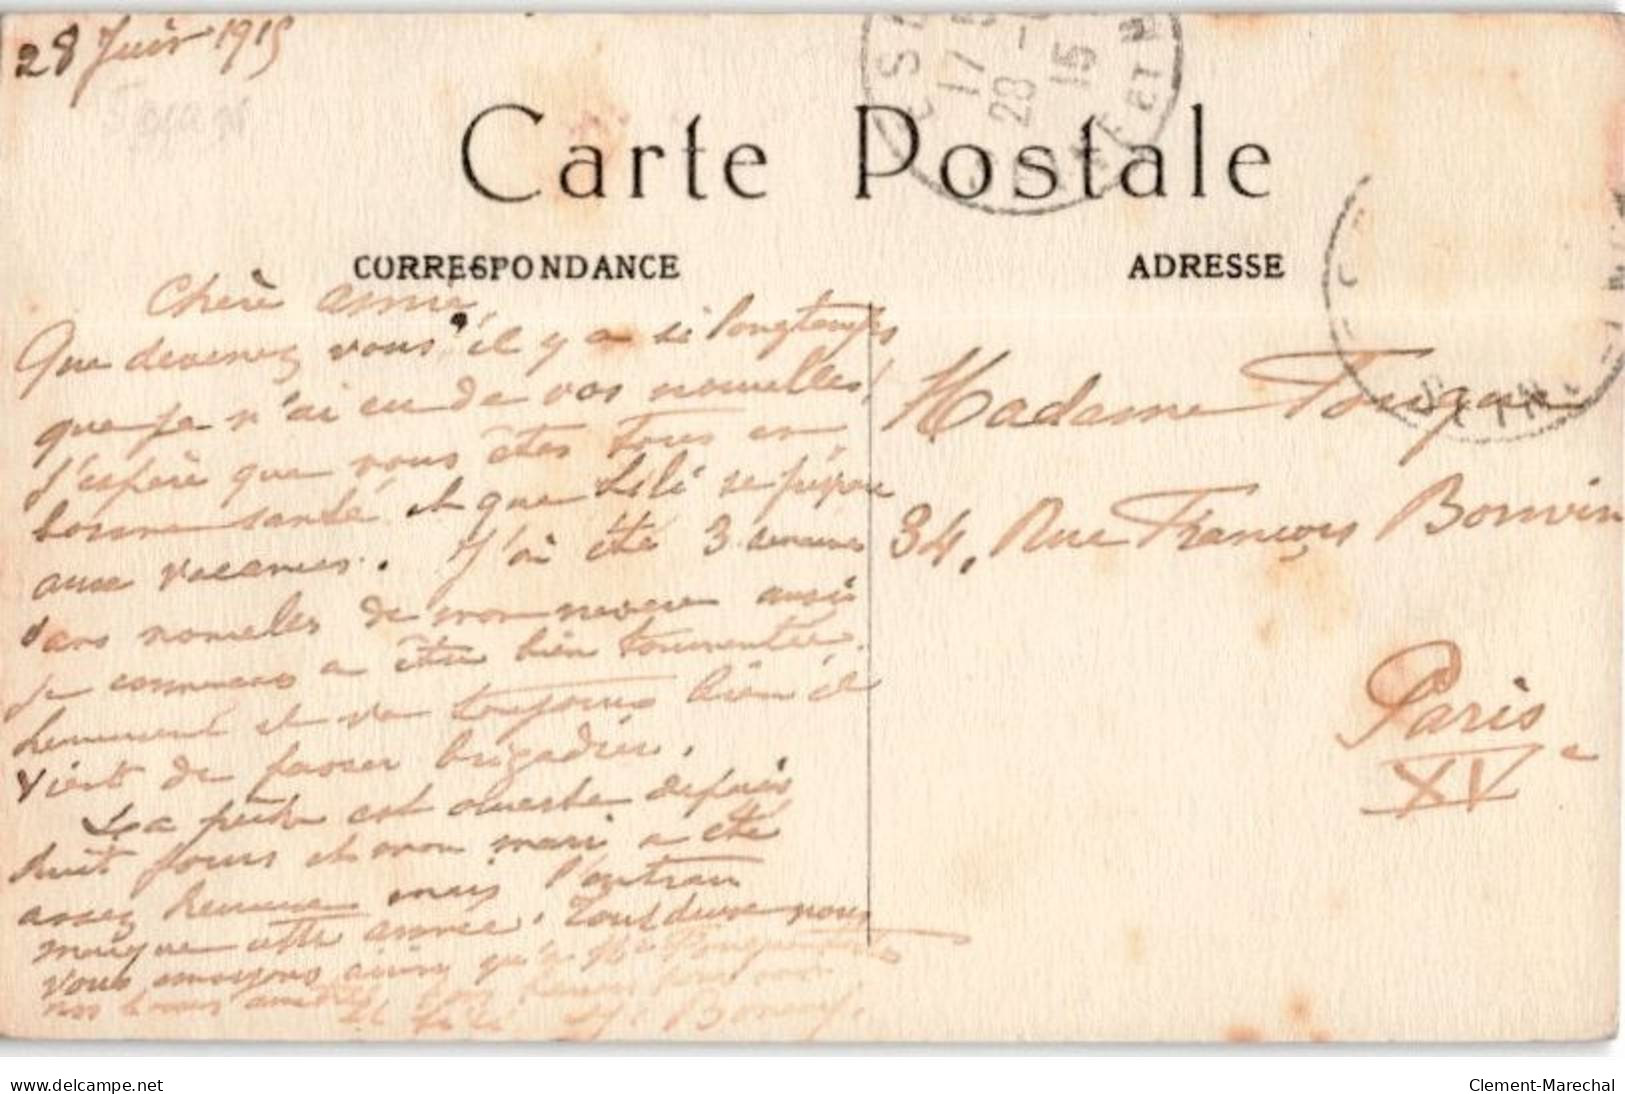 28 Juin 1915
Carte Postale
CORRESPONDANCE
ADRESSE
17
28
15
Chère amie,
Que devenez vous il y a si longtemps
que je n'ai eu de vos nouvelles!
J'espère que vous êtes tous en
bonne santé et que Lili se prépare
aux vacances. J'ai été 3 semaines
sans nouvelles de mon neveu aussi
je commencais a être bien tourmentée.
heureusement et va toujours bien il
vient de passer brigadier.
La pêche est ouverte depuis
huit jours et mon mari a été
assez heureux mais
manque cette année. Tous deux nous
vous envoyons ainsi qu'à Mr
nos bonnes amitiés
et Lili
Madame
34, Rue François Bonvin
Paris
XVe
www.delcampe.net
Clement-Marechal